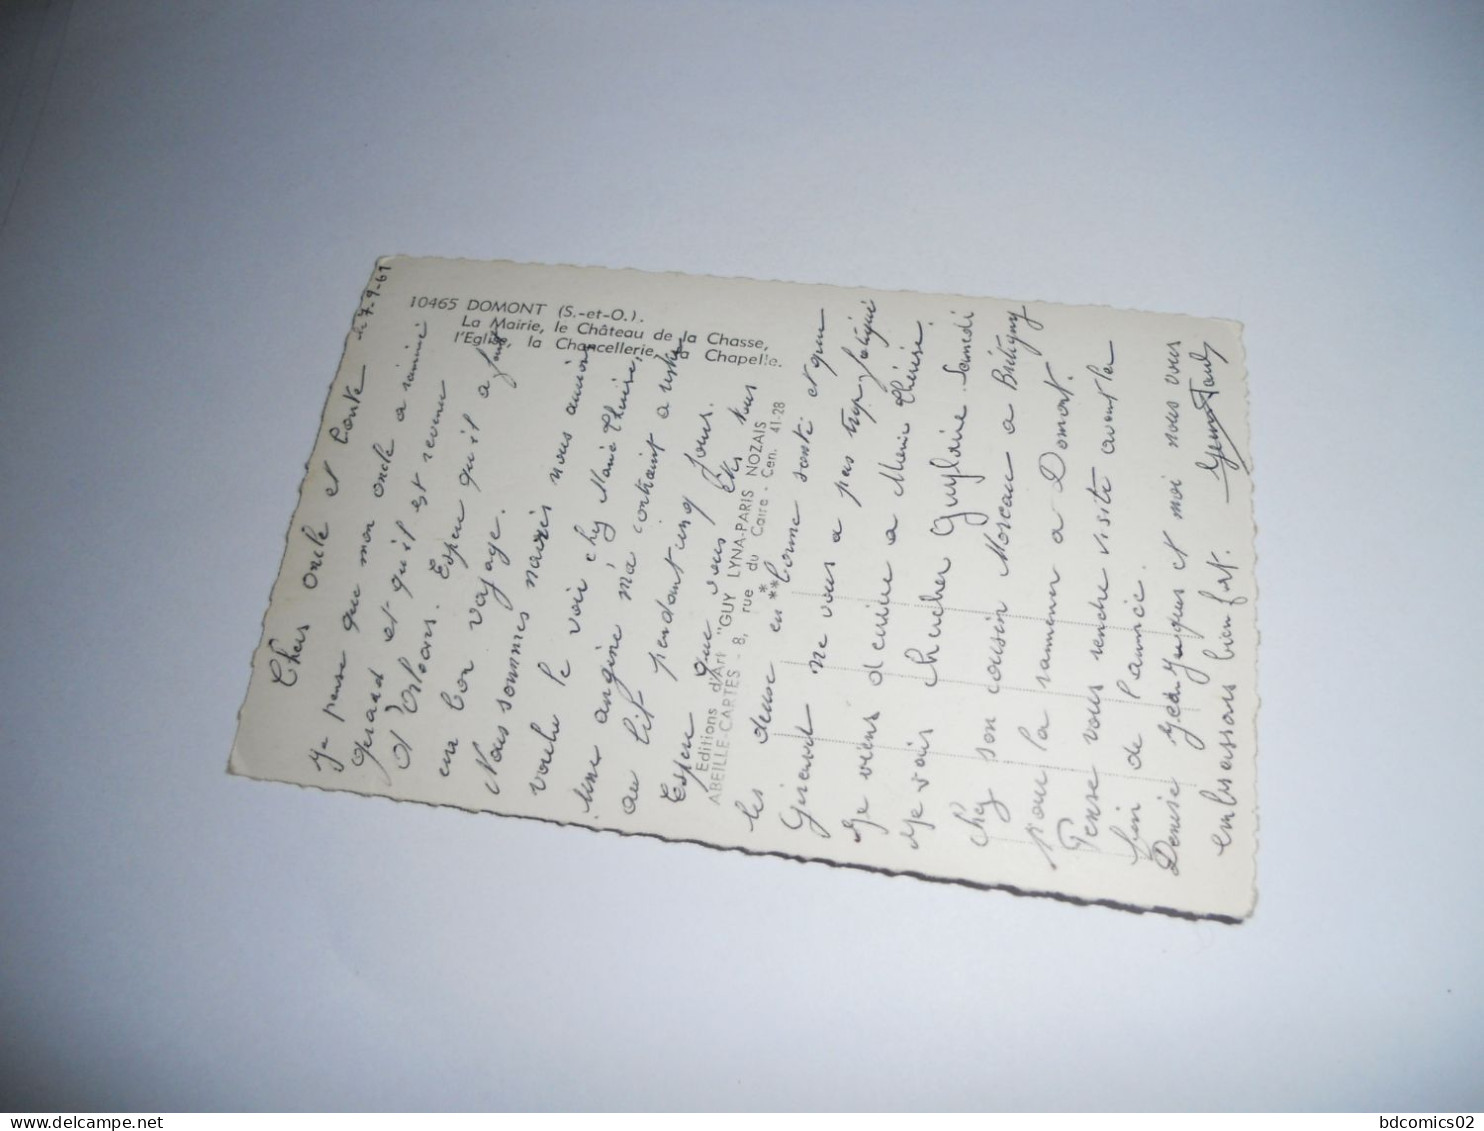 10465 DOMONT (S.-et-O.).
La Mairie, le Château de la Chasse,
l'Eglise, la Chancellerie, la Chapelle.
Editions d'Art "GUY LYNA-PARIS NOZAIS
ABEILLE-CARTES - 8, rue du Caire - Cen. 41-28
7-9-61
Chers oncle et tante
Je pense que mon oncle a ramené
Gérard et qu'il est revenu
d'Orléans. Espere qu'il a fait
un bon voyage.
Nous sommes navrés nous aurions
voulu le voir chez Marie Thérèse,
Une angine m'a contraint a rester
au lit pendant cinq jours.
Espere que vous êtes tous
les deux en bonne santé et que
Girault ne vous a pas trop fatigué
Je viens d'ecrire a Marie Thérèse.
Je vais chercher Guylaine Samedi
chez son cousin Moreau a Brétigny
pour la ramener a Domont.
Pense vous rendre visite avant la
fin de l'année.
Denise Jean Jacques et moi nous vous
embrassons bien fort.
bdcomics02